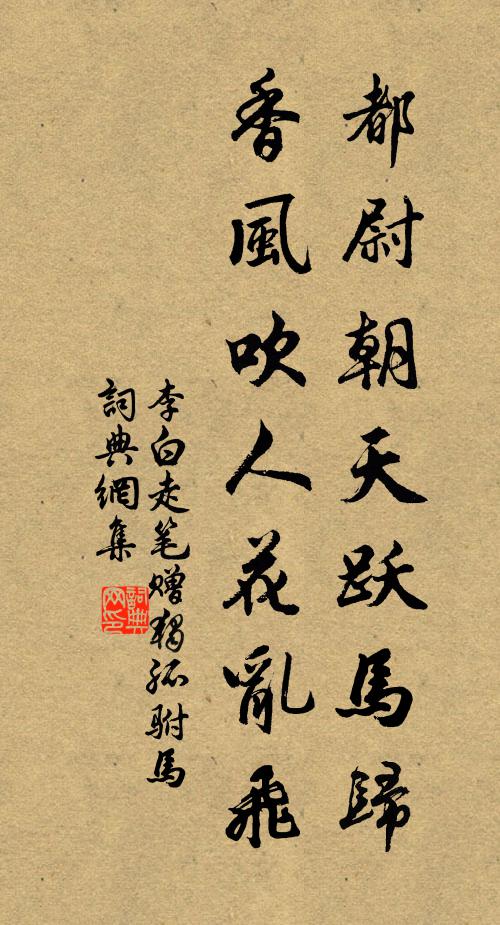 都尉朝天跃馬歸
香風吹人花亂飛
李白走笔贈獨孤駙馬
詞典網集
詞典
网印